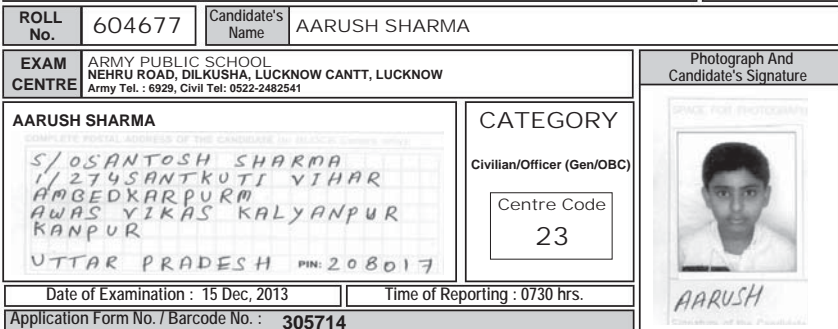 ROLL No. 604677 Candidate's Name AARUSH SHARMA
EXAM CENTRE
ARMY PUBLIC SCHOOL
NEHRU ROAD, DILKUSHA, LUCKNOW CANTT, LUCKNOW
Army Tel. : 6929, Civil Tel: 0522-2482541
Photograph And
Candidate's Signature
AARUSH SHARMA
COMPLETE POSTAL ADDRESS OF THE CANDIDATE
S/OSANTOSH SHARMA
1/274SANTKUTI VIHAR
AMBEDKARPURM
AWAS VIKAS KALYANPUR
KANPUR
UTTAR PRADESH PIN: 208017
CATEGORY
Civilian/Officer (Gen/OBC)
Centre Code
23
SPACE FOR PHOTOGRAPH
AARUSH
Signature of the Candidate
Date of Examination : 15 Dec, 2013
Time of Reporting : 0730 hrs.
Application Form No. / Barcode No. : 305714